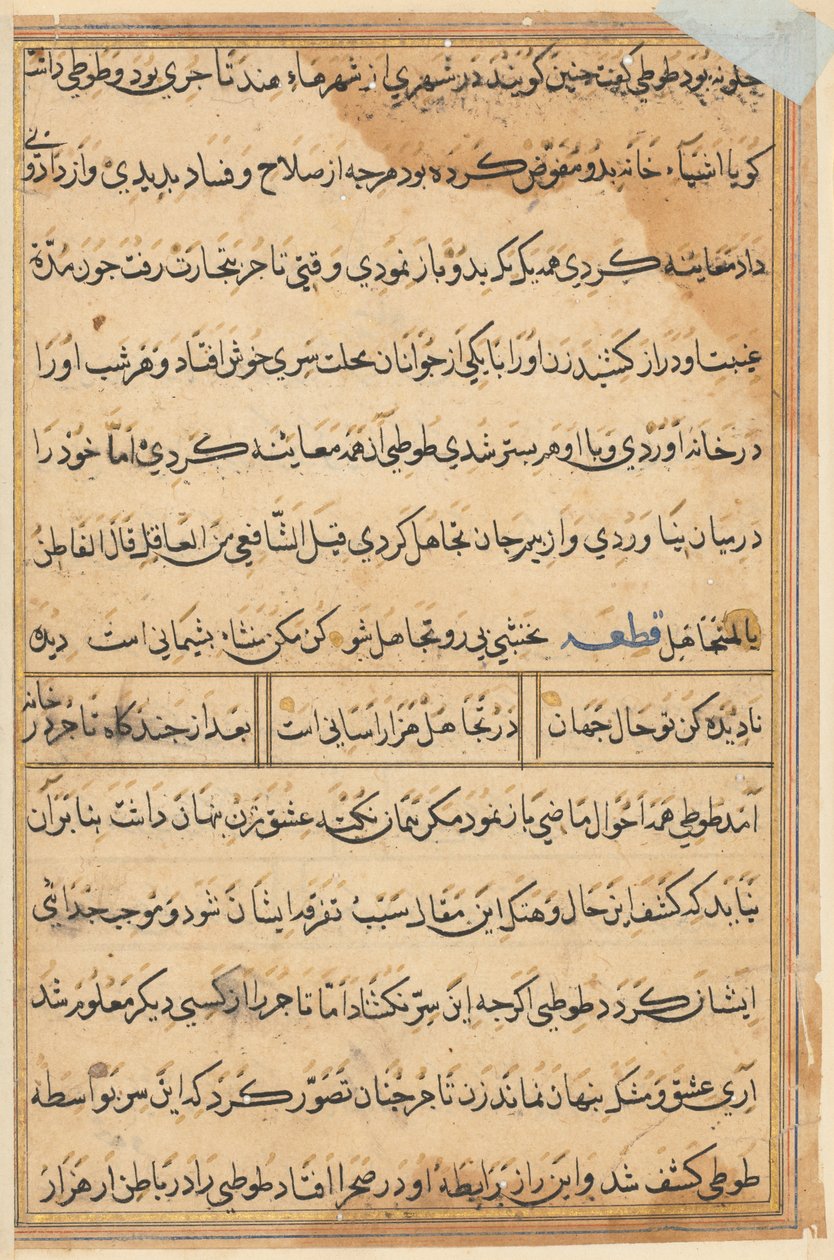 چلونه بود طوطی کفت چنین کویند در شهری از شهرهاء هند تاجری بود و طوطی داشت
کویا اشیاء خانه بدو مفوّض کرده بود هرچه از صلاح و فساد بدیدی و از داد و بی
داد معاینه کردی همه یک یک بدو باز نمودی وقتی تاجر بتجارت رفت چون مدّة
غیبت او دراز کشید زن او را با یکی از جوانان محلت سری خوش افتاد و هر شب او را
در خانه آوردی و با او هم بستر شدی طوطی آن همه معاینه کردی امّا خود را
در میان نیاوردی و از بیم جان تجاهل کردی قیل الشّافعی من العاقل قال الفاطن
یا المتجاهل قطعه نخشبی رو تجاهل شو کن مکن منشاء بشیمانی است دیده
نادیده کن تو حال جهان در تجاهل هزار آسانی است بعد از چند کاه تاجر در خانه
آمد طوطی همه احوال ماضی باز نمود مکر همان نکته عشق زن بنهان داشت بنا بر آن
نباید که کشف این حال و هتک این مقال سبب تفرقه ایشان شود و موجب جدائی
ایشان کردد طوطی اکرچه این سرّ نکشاد امّا تاجر را از کسی دیکر معلوم شد
آری عشق و مشک بنهان نماند زن تاجر چنان تصوّر کرد که این سر بواسطه
طوطی کشف شد و این راز برابطه او در صحرا افتاد طوطی را در باطن از هزار